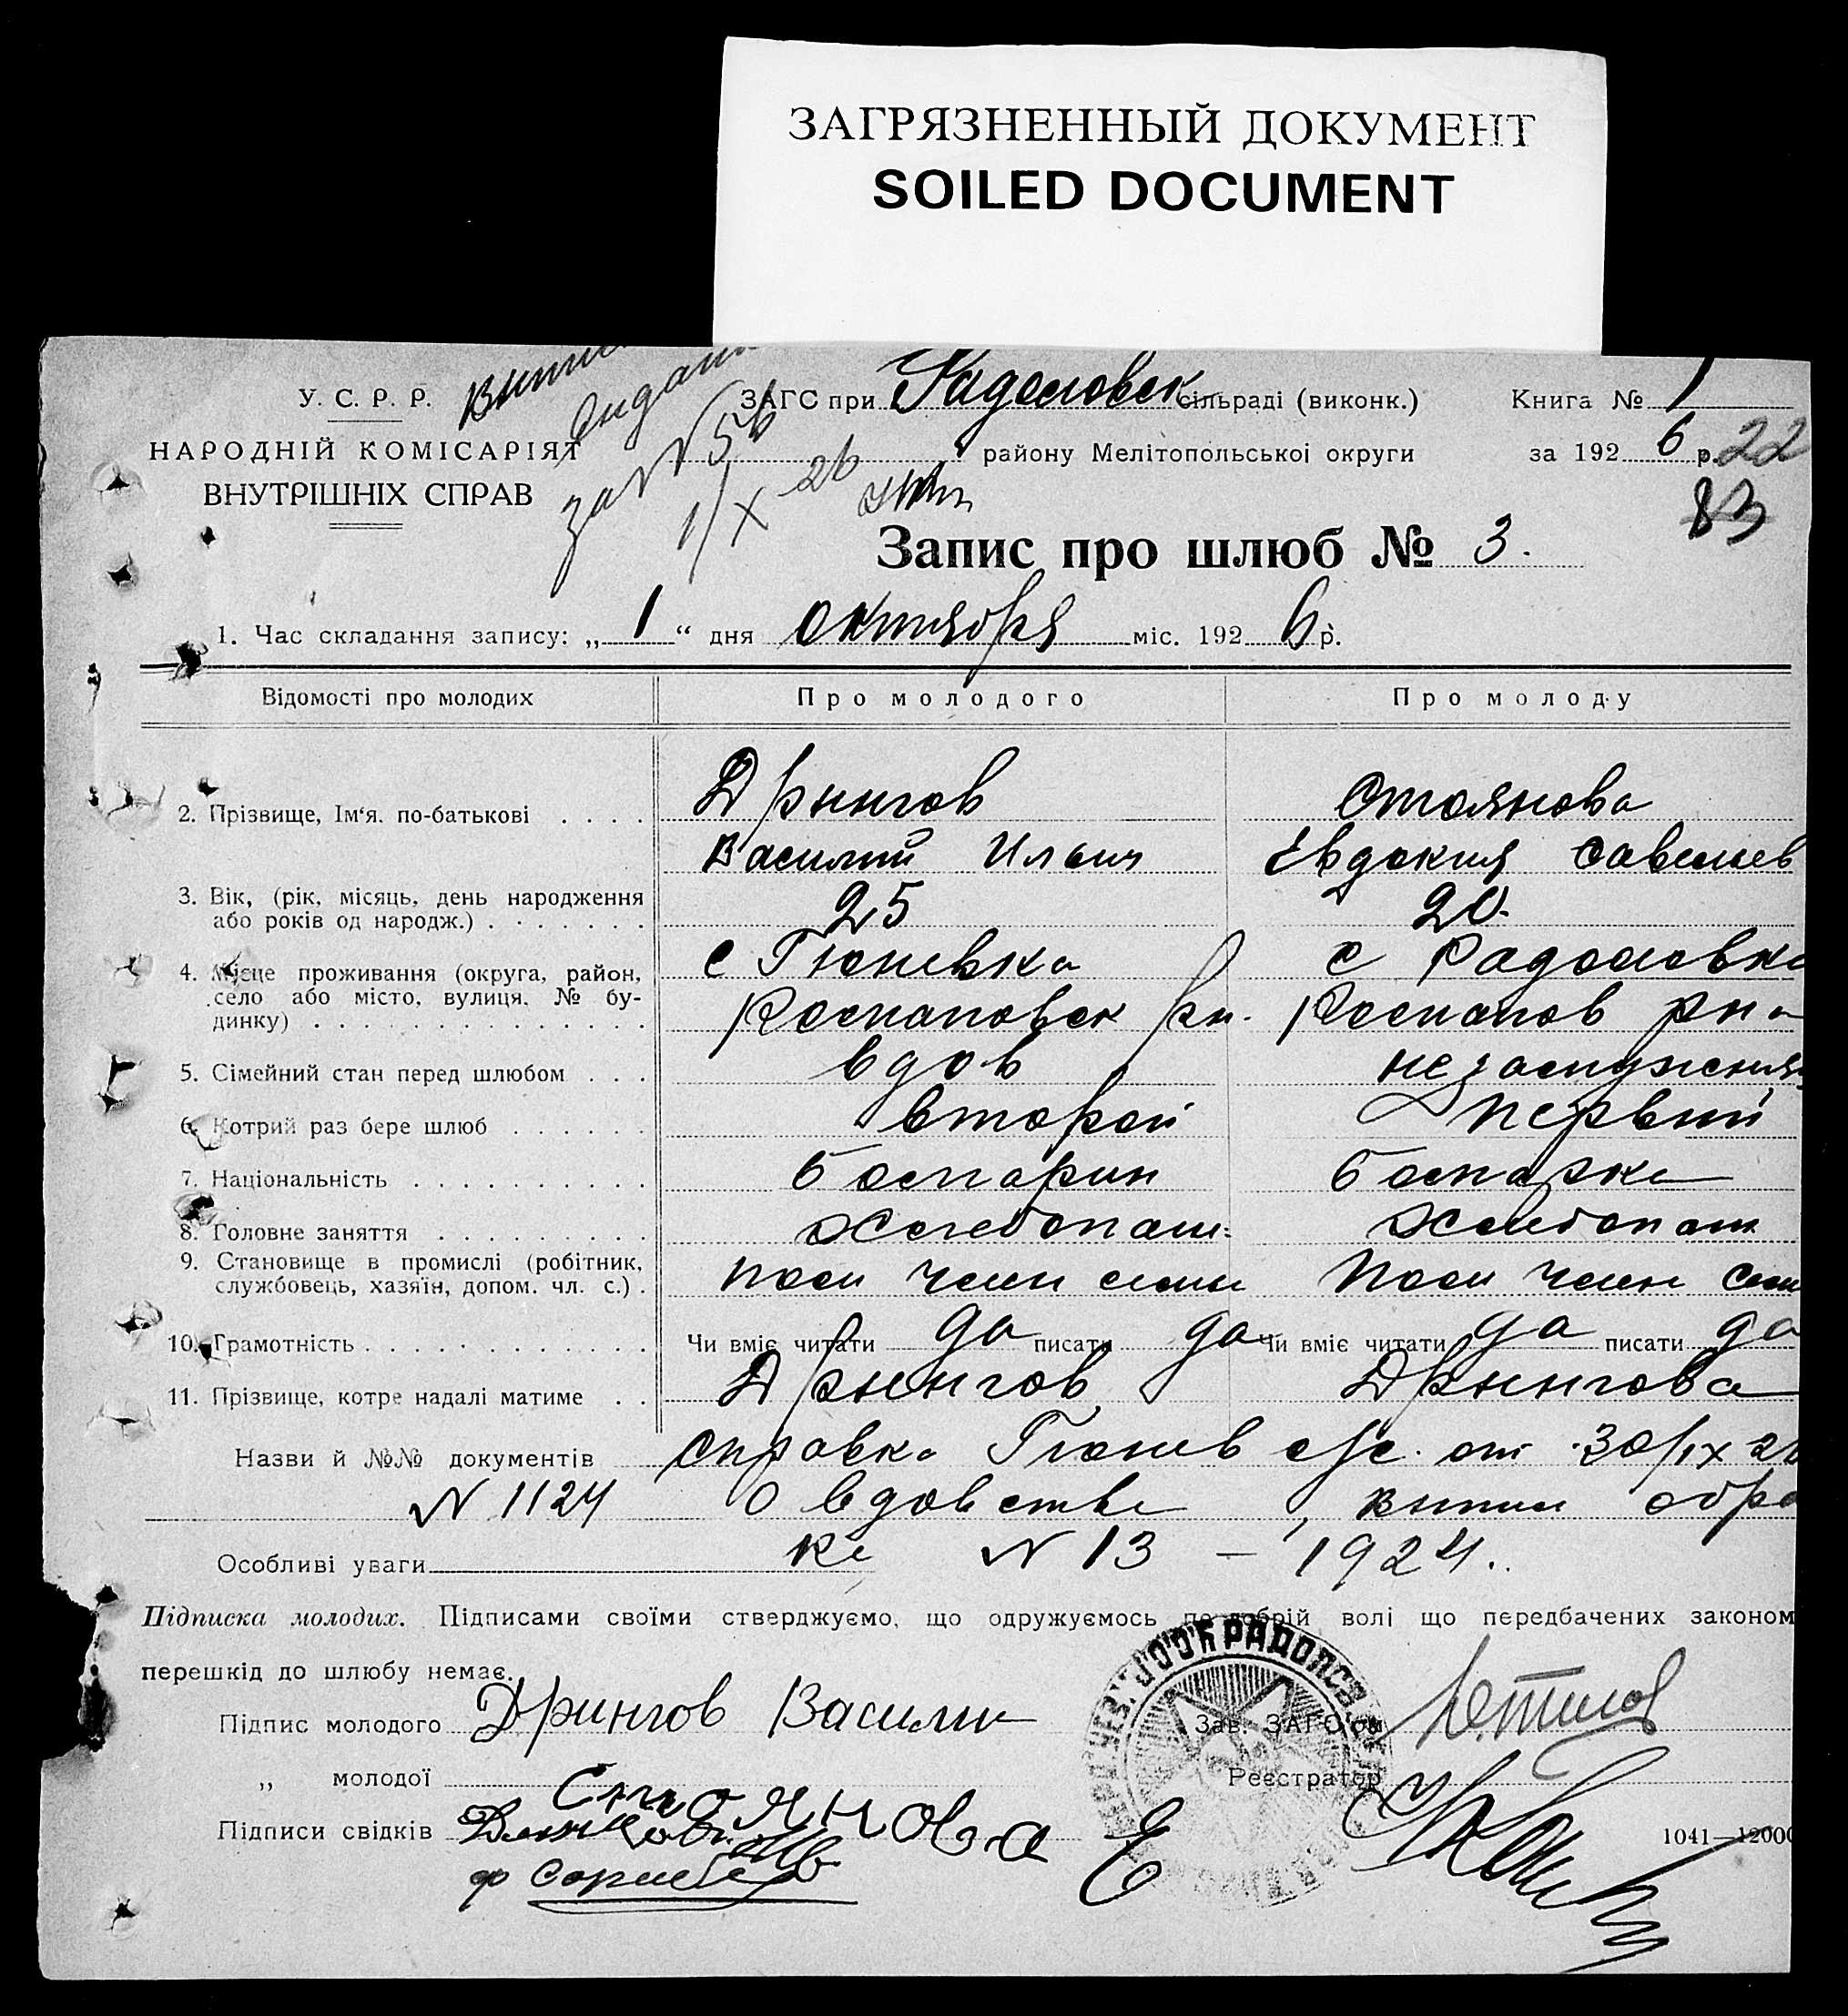 ЗАГРЯЗНЕННЫЙ ДОКУМЕНТ
SOILED DOCUMENT
У. С. Р. Р.
НАРОДНІЙ КОМІСАРІЯТ
ВНУТРІШНІХ СПРАВ
за № 56
1/X 26
ЗАГС при Радоловск сільраді (виконк.)
району Мелітопольської округи
Книга № 1
за 1926 р. 22
83
Запис про шлюб № 3.
1. Час складання запису: „1“ дня октября міс. 1926 р.
Відомості про молодих Про молодого Про молоду
2. Прізвище, Ім‘я. по-батькові . . . . Дрынгов Стоянова
Василий Ильич Евдокия Савельев
3. Вік, (рік, місяць, день народження
або років од народж.) . . . . . . . 25 20.
4. Місце проживання (округа, район, с Гюневка с Радоловка
село або місто, вулиця. № бу-
динку) . . . . . . . . . . . . . . Колпаковск рн. Колпаков рна
5. Сімейний стан перед шлюбом . . . вдов незамужняя
6. Котрий раз бере шлюб . . . . . . второй первый
7. Національність . . . . . . . . . . болгарин болгарка
8. Головне заняття . . . . . . . . . хлебопаш. хлебопаш
9. Становище в промислі (робітник,
службовець, хазяїн, допом. чл. с.) . пом член семьи пом член сем
10. Грамотність . . . . . . . . . . . . Чи вміє читати да писати да Чи вміє читати да писати да
11. Прізвище, котре надалі матиме . . Дрынгов Дрынгова
Назви й №№ документів справка Гюнев с/с. от 30/IX 26
№ 1124 о вдовстве, выпис о бра
Особливі уваги ке № 13 — 1924.
Підписка молодих. Підписами своїми стверджуємо, що одружуємось по добрій волі що передбачених законом
перешкід до шлюбу немає.
Підпис молодого Дрингов Василий
Зав. ЗАГС‘ом
„ молодої Стоянова Е
Реєстратор
Підписи свідків
1041—12000